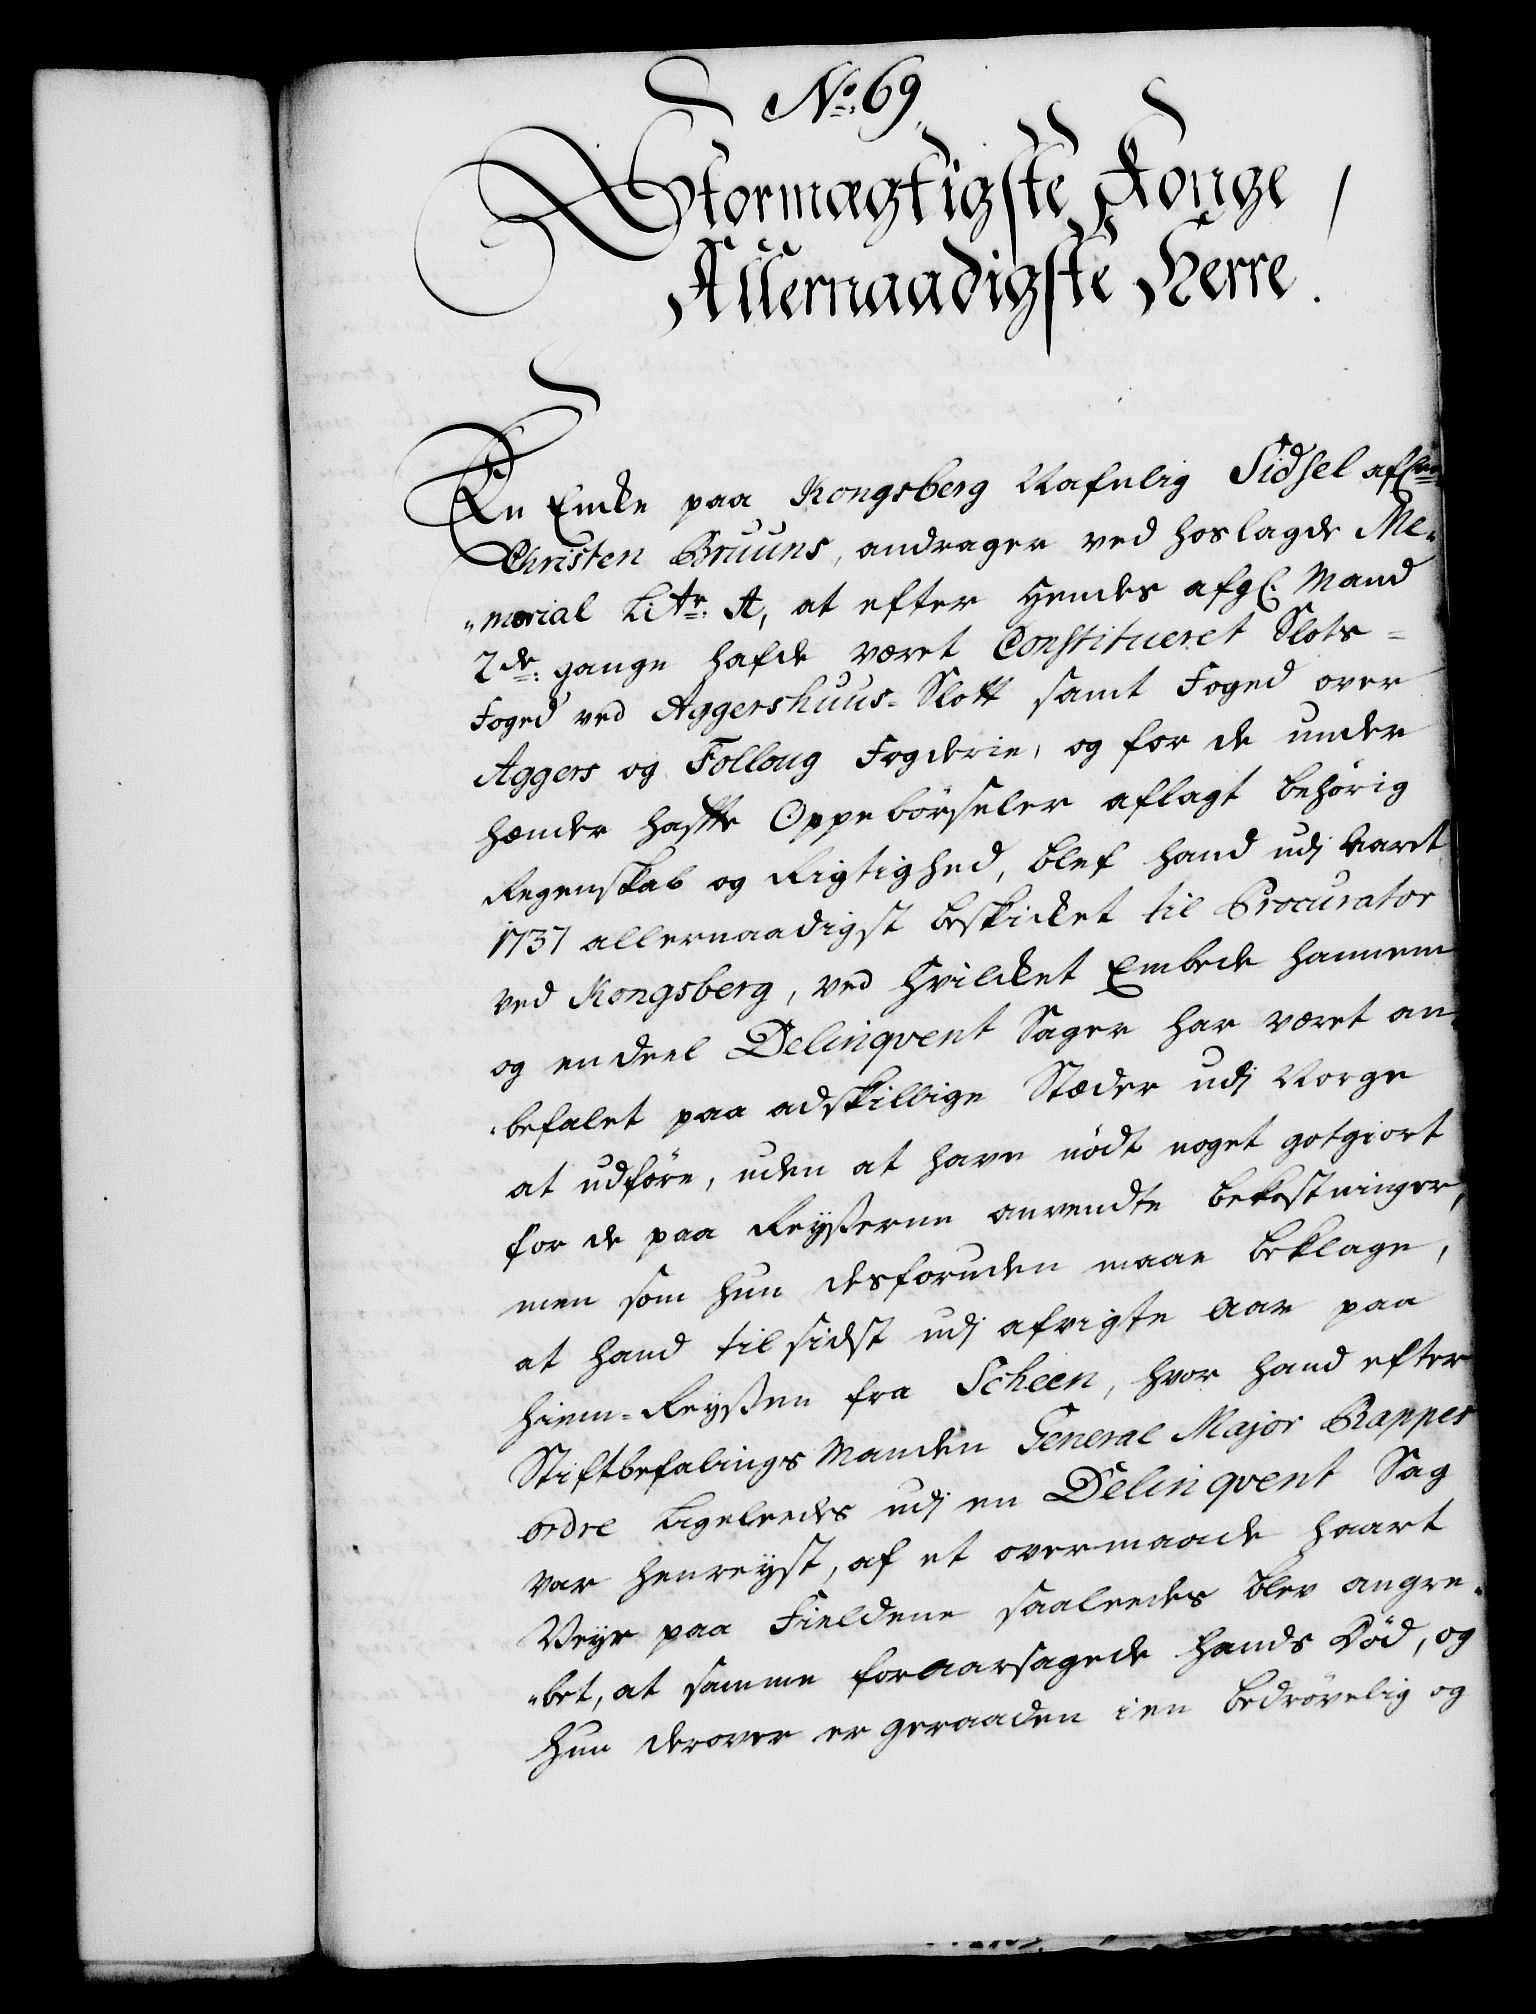 No: 69.
Stormægtigste Konge
Allernaadigste Herre.
En Encke paa Kongsberg Nafnlig Sidsel afgl:
Christen Bruuns, andrager ved hoslagde Me-
„morial Litr. A, at efter hendes afgl: Mand
2de: gange hafde været Constitueret Slots-
Foged ved Aggershuus-Slott samt Foged over
Aggers og Folloug Fogderie, og for de under
hænder hafte Oppebörseler aflagt behörig
Regenskab og Rigtighed, blef hand udj Aaret
1737 allernaadigst beskicket til Procurator
ved Kongsberg, ved hvilcket Embede hannem
og en deel Delinqvent Sager har været an-
„befalet paa adskillige Stæder udj Norge
at udföre, uden at have nödt noget gotgiort
for de paa Reysserne anvendte bekostninger,
men som hun desforuden maae beklage,
at hand til sidst udj afvigte Aar paa
hiem-Reyssen fra Scheen, hvor hand efter
Stiftbefalings Manden General Major Rappes
ordre ligeleedes udj en Delinqvent Sag
var henreyst, af et overmaade haart
Veyr paa Fieldene saaleedes blev angre-
„bet, at samme foraarsagede hands Död, og
hun derover er geraaden i en bedrövelig og